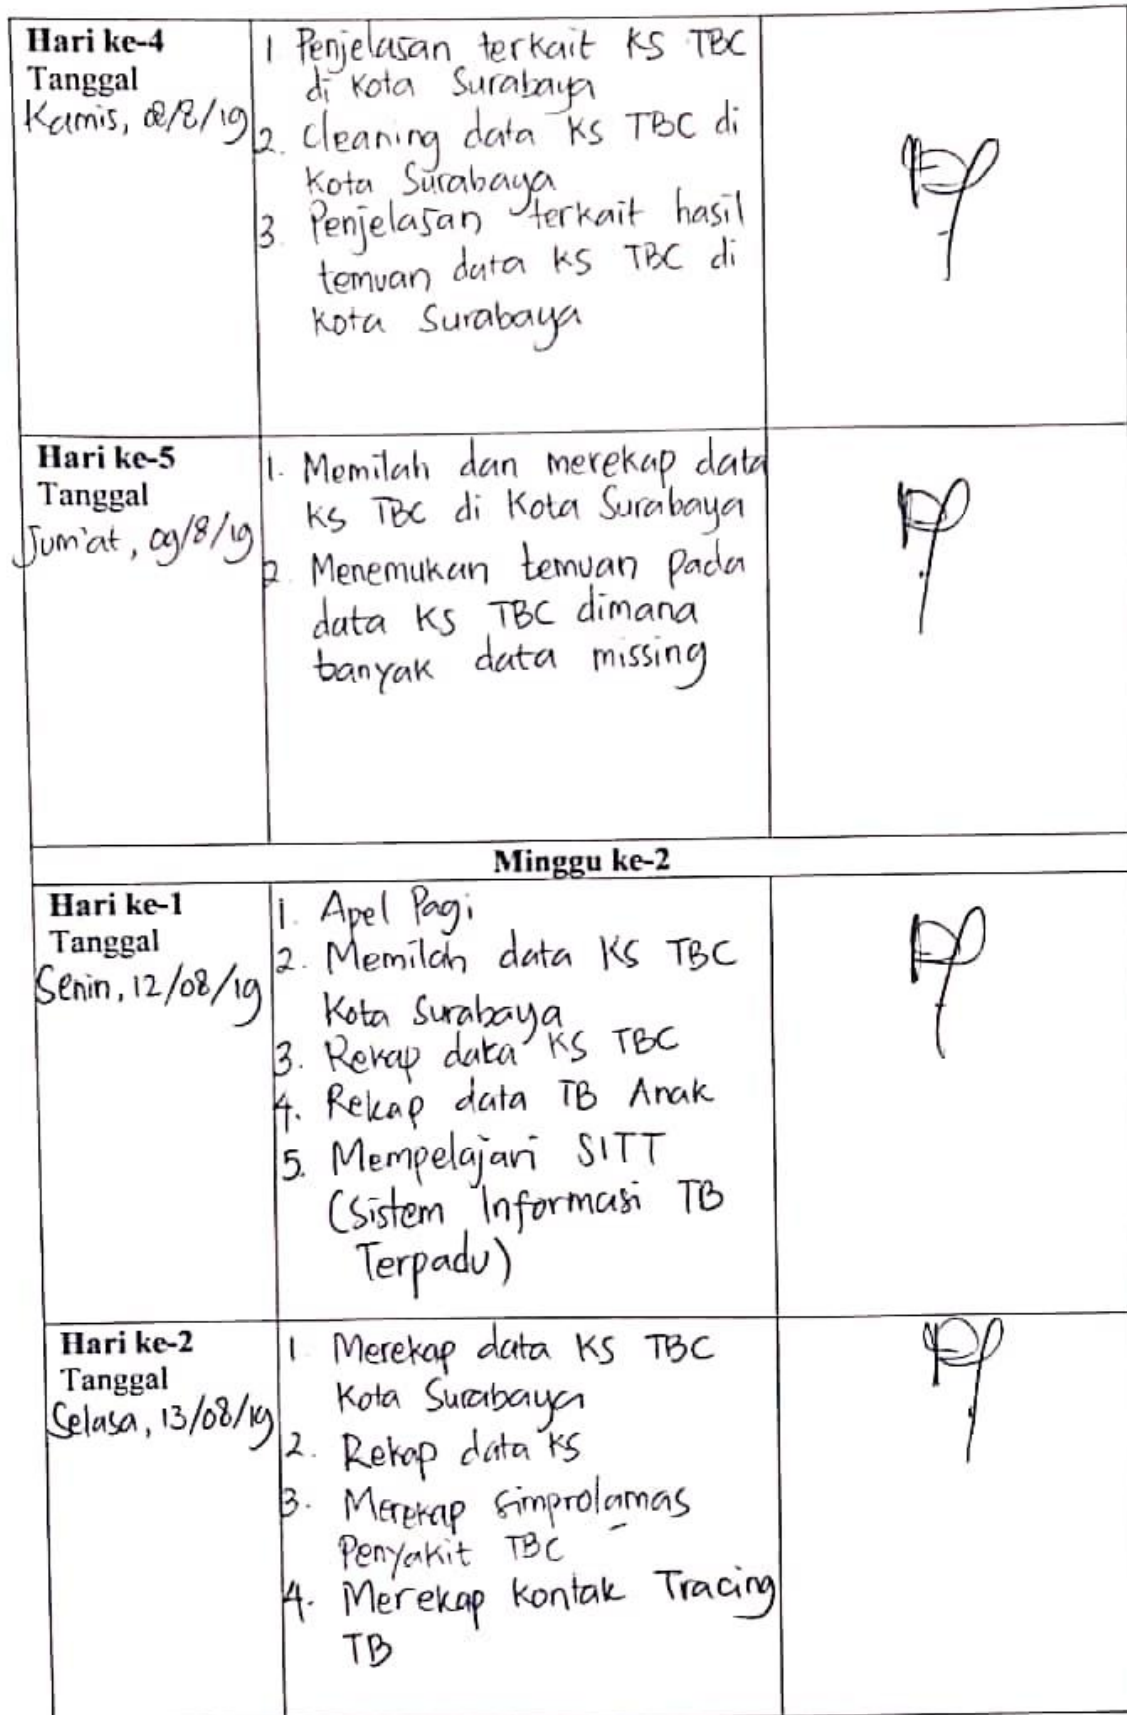 Hari ke-4
Tanggal
Kamis, 08/8/19
1 Penjelasan terkait KS TBC
di Kota Surabaya
2. Cleaning data KS TBC di
Kota Surabaya
3. Penjelasan terkait hasil
temuan data KS TBC di
Kota Surabaya
Hari ke-5
Tanggal
Jum'at, 09/8/19
1. Memilah dan merekap data
KS TBC di Kota Surabaya
2. Menemukan temuan pada
data KS TBC dimana
banyak data missing
Minggu ke-2
Hari ke-1
Tanggal
Senin, 12/08/19
1. Apel Pagi
2. Memilah data KS TBC
Kota Surabaya
3. Rekap data KS TBC
4. Rekap data TB Anak
5. Mempelajari SITT
(Sistem Informasi TB
Terpadu)
Hari ke-2
Tanggal
Selasa, 13/08/19
1. Merekap data KS TBC
Kota Surabaya
2. Rekap data KS
3. Merekap simprolamas
Penyakit TBC
4. Merekap Kontak Tracing
TB